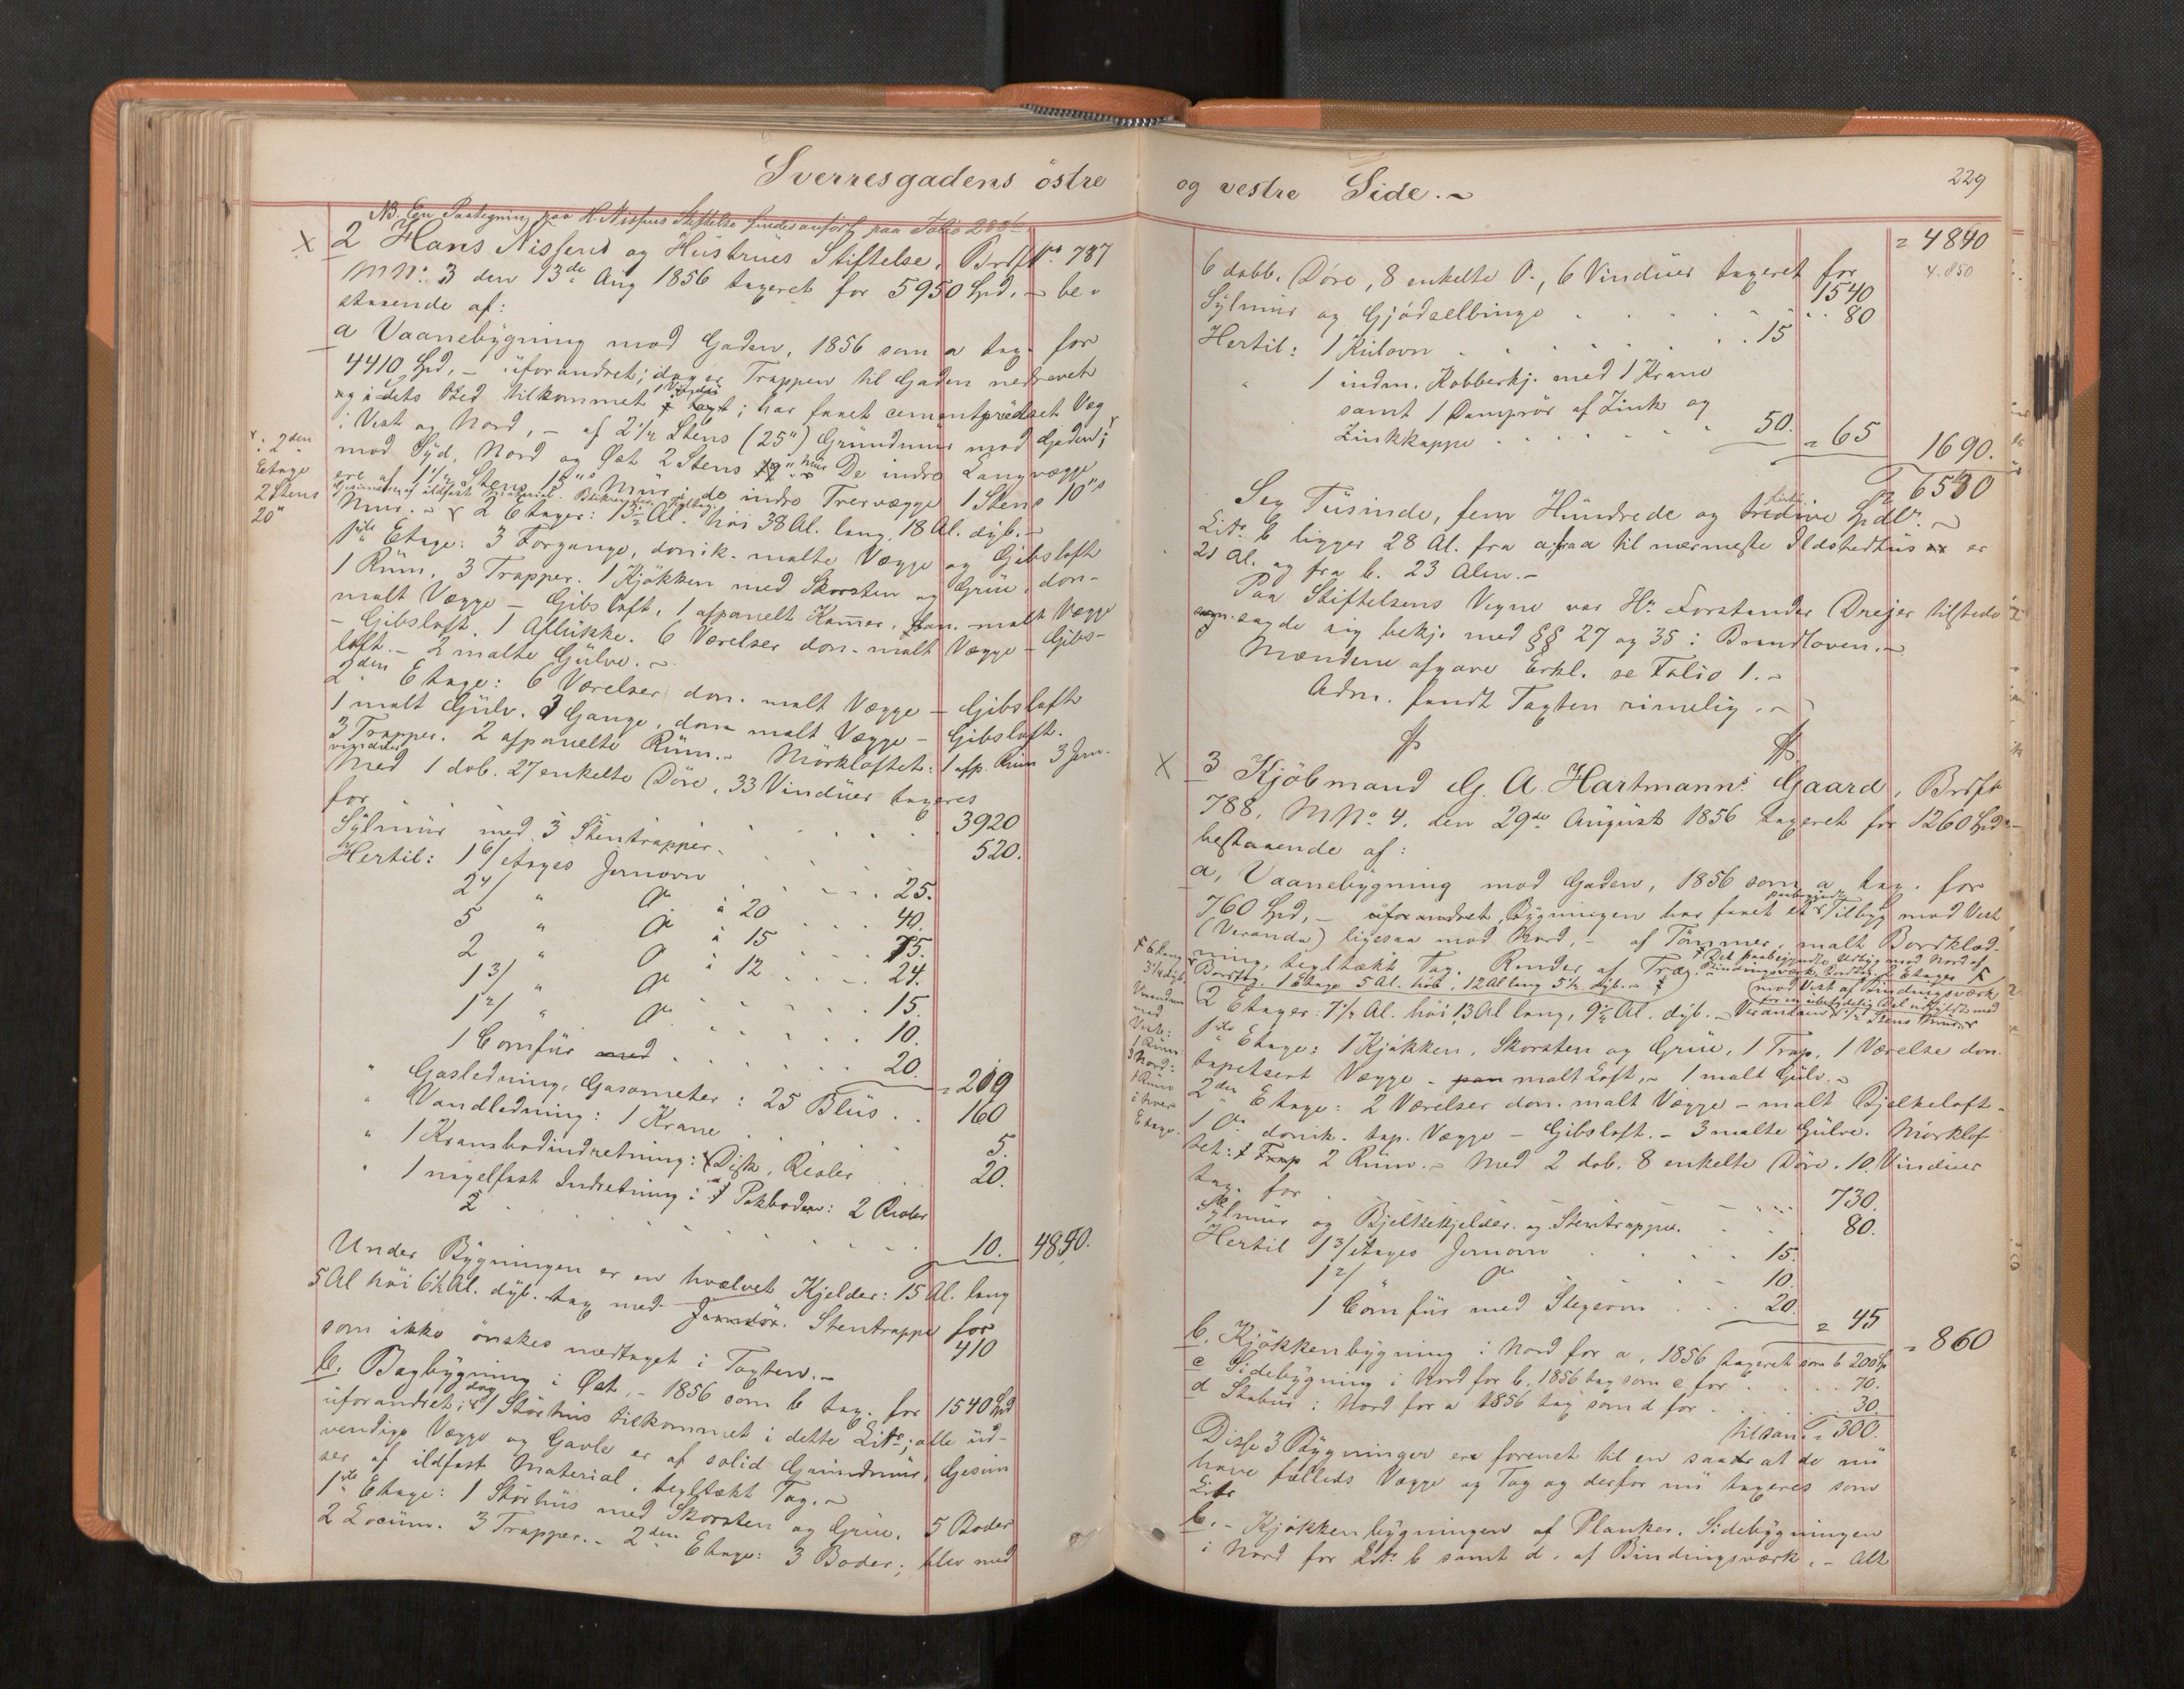 Sverresgadens östre
NB. En Paategning paa H. Nissens Stiftelse findes anført paa Folio
2 Hans Nissens og Hustrues Stiftelse, Brdf No 787
M No 3 den 13de Aug 1856 taxeret for 5950 Spd, - be-
staaende af:
a Vaanebygning mod Gaden, 1856 som a tax. for
4410 Spd, - uforandret; dog er Trappen til Gaden nedrevet
og i dets Sted tilkommet 1 Vindue; har faaet cementpudset Væg
i Vest og Nord, - af 2 1/2 Stens (25") Grundmur mod Gaden;
x. 2den Etage 2 Stens 20"
mod Syd, Nord og Øst 2 Stens De indre Langvægge
ere af 1 1/2 Stens 15" Mur; de indre Tvervægge 1 Stens 10"
Gesimser af ildfast Material.
Mur. - 2 Etager: 13 1/2 Al. høi 38 Al. lang, 18 Al. dyb. -
1ste Etage: 3 Forgange, donik. malte Vægge og Gibsloft
1 Rum, 3 Trapper. 1 Kjøkken med Skorsten og Grue, don-
malt Vægge - Gibsloft, 1 afpanelt Kammer, pan. malt Vægge
- Gibsloft. 1 Aflukke. 6 Værelser don. malt Vægge - Gibs-
loft. - 2 malte Gulve. -
2den Etage: 6 Værelser don. malt Vægge - Gibsloft
1 malt Gulv. 3 Gange, don malt Vægge - Gibsloft.
3 Trapper. 2 afpanelte Rum. - Mørkloftet: 1 afp. Rum 3 Jern-
vinduer
Med 1 dob. 27 enkelte Døre, 33 Vinduer taxeres
for . . . . 3920
Sylmur med 3 Stentrapper . . . 520.
Hertil: 1 6/ etages Jernovn . . . 25.
2 4/ " do à 20 . . . 40.
5 " do à 15 . . . 75.
2 " do à 12 . . . 24.
1 3/ " do . . . 15.
1 2/ " do . . . 10.
1 Comfur med . . . 20. = 209
" Gasledning, Gasometer: 25 Blus . 160
" Vandledning: 1 Krane . . . 5.
" 1 Krambodindretning: Disk, Reoler . . 20.
" 1 nagelfast Indretning i Pakboden: 2 Reoler
2 . . . . 10. 4840.
Under Bygningen er en hvælvet Kjelder: 15 Al. lang
5 Al høi 6 1/2 Al. dyb. tax med Jerndør. Stentrappe for
410
som ikke ønskes medtaget i Taxten. -
b. Bagbygning i Øst, - 1856 som b tax. for 1540 Spd
uforandret; dog 1 Størhus tilkommet i dette Litr; alle ud-
vendige Vægge og Gavle er af solid Grundmur, Gesim
ser af ildfast Material, tegltækt Tag. -
1ste Etage: 1 Størhus med Skorsten og Grue. 5 Boder
2 Locum. 3 Trapper. - 2den Etage: 3 Boder; blev med
og vestre Side. -
229
= 4840
4.850
6 dobb. Døre, 8 enkelte Do, 6 Vinduer taxeret for 1540
Sylmur og Gjødselbinge . . . . 80
Hertil: 1 Kulovn . . . . 15
" 1 indm. Kobberkj. med 1 Krane
samt 1 Damprør af Zink og
Zinkkappe . . . . 50. = 65 1690.
6530
Sex Tusinde, fem Hundrede og tredive Spdlr. -
Litr. b ligger 28 Al. fra a fraa til nærmeste Ildstedhus er
21 Al. og fra b. 23 Alen. -
Paa Stiftelsens Vegne var Hr Forstander Drejer tilstede
sagde sig bekj. med §§ 27 og 35 i Brandloven. -
Mændene afgave Erkl. se Folio 1. -
Adm. fandt Taxten rimelig. -
3 Kjøbmand G. A. Hartmanns Gaard, Brdf No
788, M No 4. den 29de August 1856 taxeret for 1260 Spd -
bestaaende af:
a, Vaanebygning mod Gaden, 1856 som a tax. for
760 Spd, - uforandret, Bygningen har faaet et paabegyndt Tilbyg mod Vest
(Veranda) ligesaa mod Nord, - af Tømmer, malt Bordklæd-
ning, tegltækt Tag. Render af Træ.
Det paabegyndte Udbyg mod Nord af
Bindingsværk, Bordtag, 2 Etages
Bordtag. 1 Etage 5 Al. høi, 12 Al lang 5 1/2 dyb. -
mod Vest af Bindingsværk
2 Etager: 7 1/2 Al. høi, 13 Al lang, 9 1/2 Al. dyb. - Verandaen 1/2 Stens Mur
Verandaen
med
Vest:
1 Rum
i Nord:
1 Rum
i hver
Etage.
1ste Etage: 1 Kjøkken, Skorsten og Grue, 1 Trap. 1 Værelse don.
tapetsert Vægge - pan malt Loft, - 1 malt Gulv. -
2den Etage: 2 Værelser don. malt Vægge - malt Bjelkeloft -
1 do donik. tap. Vægge - Gibsloft. - 3 malte Gulve. Mørklof
tet: 1 Trap 2 Rum. - Med 2 dob. 8 enkelte Døre. 10 Vinduer
tax. for . . . . 730.
Sylmur og Bjelkekjelder. og Stentrappe. . . 80.
Hertil 1 3/ etages Jernovn . . . 15.
1 2/ " do . . 10.
1 Comfur med Stegeovn . . 20. = 45 = 860
b. Kjøkkenbygning i Nord for a, 1856 taxeret som b 200 Sp
c Sidebygning i Nord for b, 1856 tax som c for . . . 70.
d Stabur i Nord for a 1856 tax som d for . . . 30.
tilsam. = 300.
Disse 3 Bygninger ere forenet til en saa at de nu
have fælleds Vægge og Tag og derfor nu taxeres som
Litr
b. - Kjøkkenbygningen af Planker. Sidebygningen
i Nord for Litr. b samt d. af Bindingsværk. - Alt